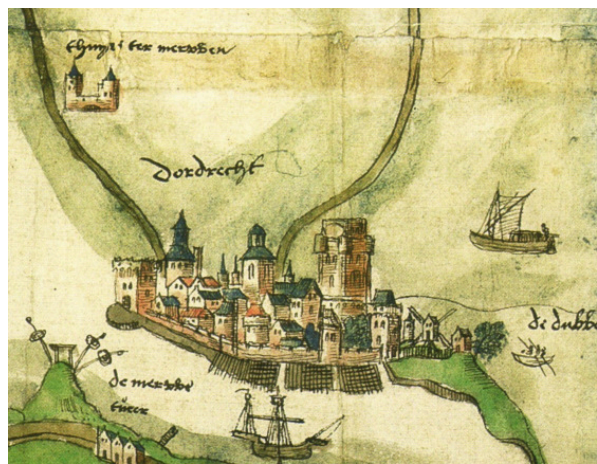 thuys ter merwben
Dordrecht
de dubbe
de merwbe